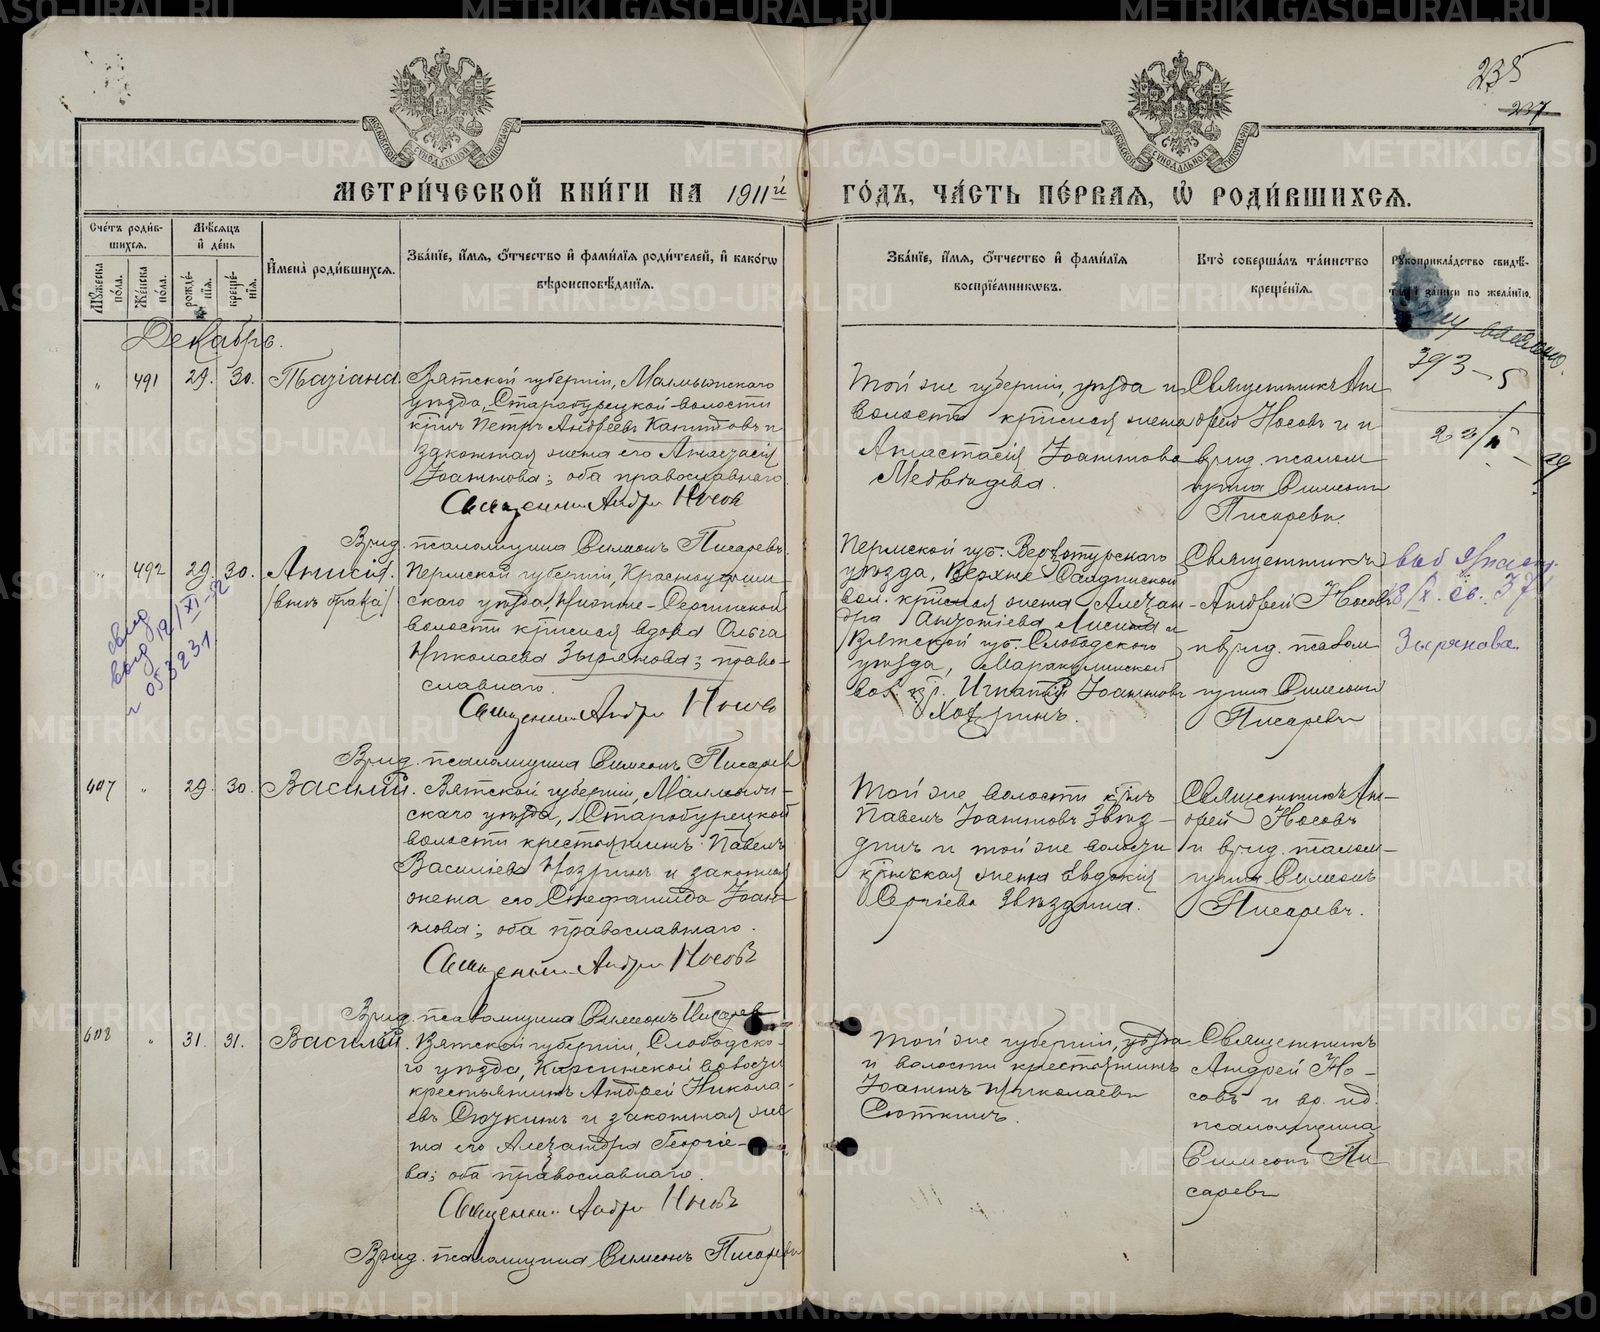 235
237
МЕТРИЧЕСКОЙ КНИГИ НА 1911й ГОДЪ, ЧАСТЬ ПЕРВАЯ, Ѡ РОДИВШИХСЯ.
Счетъ родившихся.
Мужеска пола.
Женска пола.
Мѣсяцъ и день
рожденїя.
крещенїя.
Имена родившихся.
Званїе, имя, отчество и фамилїя родителей, и какогѡ вѣроисповѣданїя.
Званїе, имя, отчество и фамилїя воспрїемникѡвъ.
Кто совершалъ таинство крещенїя.
Рукоприкладство свидѣтелей записи по желанїю.
Декабрь.
" 491 29. 30. Татіана
Вятской губерніи, Малмыжскаго
уѣзда, Старотрецкой волости
кр-нъ Петръ Андреевъ и
законная жена его Анастасія
Іоаннова; оба православнаго
Священникъ Андрей Носовъ
Врид. псаломщика Симеонъ Писаревъ.
Той же губерніи, уѣзда и
волости кр-нская жена
Анастасія Іоаннова
Медвѣдева.
Священникъ Ан-
дрей Носовъ и
врид. псалом-
щика Симеонъ
Писаревъ.
393-5
" 492 29. 30. Анисія.
(внѣ брака)
Пермской губерніи, Красноуфим-
скаго уѣзда, Нижне-Сергинской
волости кр-нская вдова Ольга
Николаева Зырянова; право-
славнаго.
Священникъ Андрей Носовъ
Врид. псаломщика Симеонъ Писаревъ
Пермской губ. Верхотурскаго
уѣзда, Верхне-Салдинской
вол. кр-нская жена Алексан-
дра Антоніева и
Вятской губ. Слободского
уѣзда,
вол. кр. Игнатій Іоанновъ
Священникъ
Андрей Носовъ
и врид. псалом-
щика Симеонъ
Писаревъ
Зырянова.
свид
выд 19/XI-52
№ 053231
607 " 29. 30. Василій.
Вятской губерніи, Малмыж-
скаго уѣзда, Старотрецкой
волости крестьянинъ Павелъ
Василіевъ и законная
жена его Стефанида Іоан-
нова; оба православнаго.
Священникъ Андрей Носовъ
Врид. псаломщика Симеонъ Писаревъ
Той же волости кр-нъ
Павелъ Іоанновъ Звѣз-
динъ и той же волости
кр-нская жена Евдокія
Сергіева Звѣздина.
Священникъ Ан-
дрей Носовъ
и врид. псалом-
щика Симеонъ
Писаревъ.
608 " 31. 31. Василій
Вятской губерніи, Слободско-
го уѣзда, Кирсинской волости
крестьянинъ Андрей Никола-
евъ Сюткинъ и законная же-
на его Александра Георгіе-
ва; оба православнаго.
Священникъ Андрей Носовъ
Врид. псаломщика Симеонъ Писаревъ
Той же губерніи, уѣзда
и волости крестьянинъ
Іоаннъ Николаевъ
Сюткинъ.
Священникъ
Андрей Но-
совъ и вр. ид.
псаломщика
Симеонъ Пи-
саревъ
METRIKI.GASO-URAL.RU